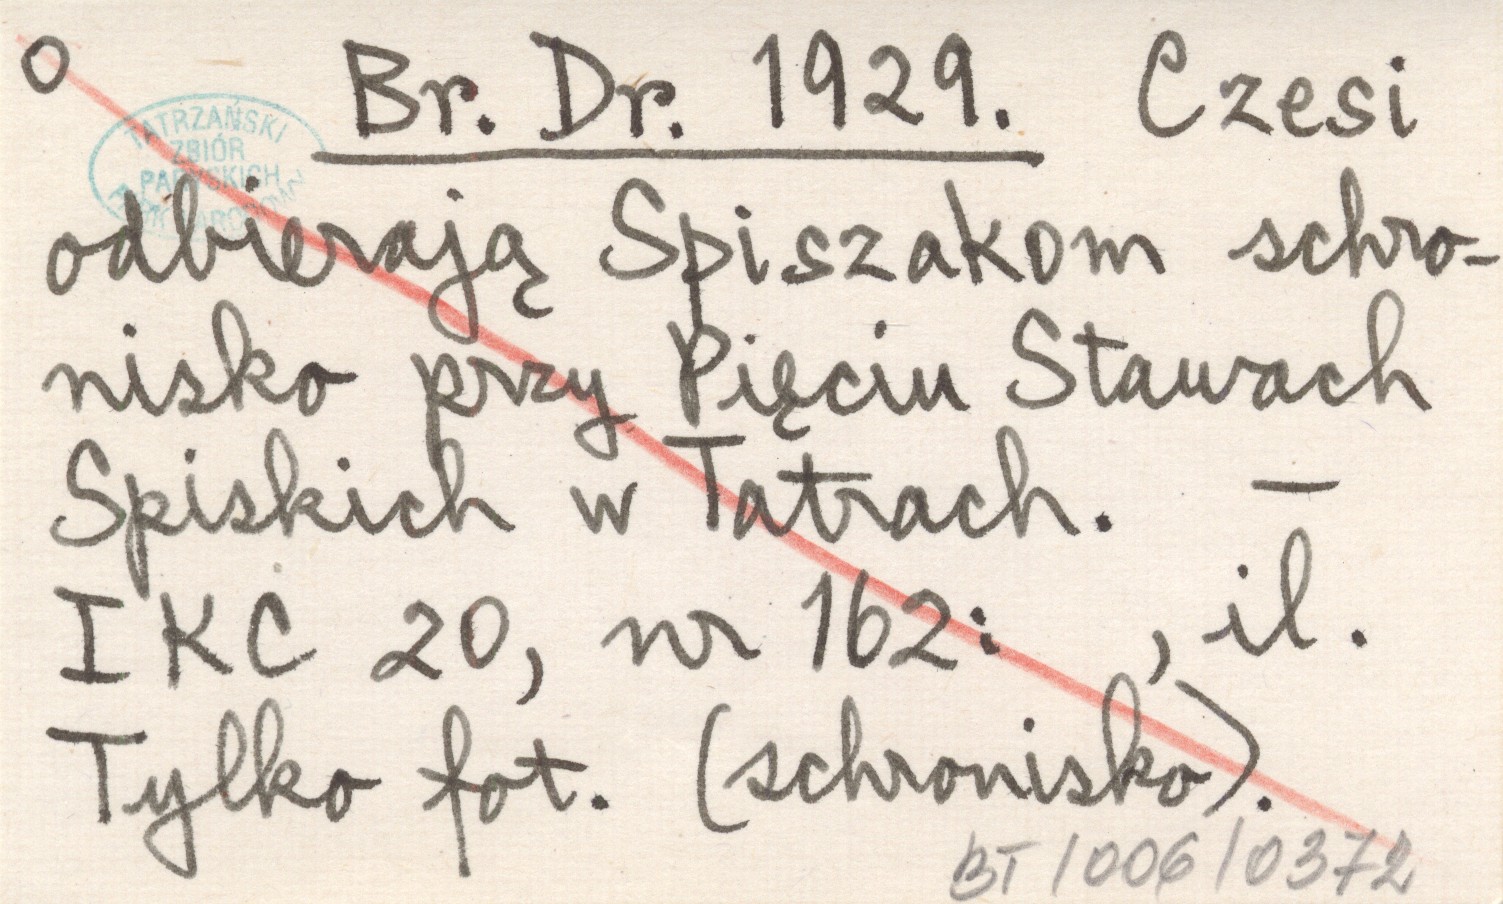 O Br. Dr. 1929. Czesi
TATRZAŃSKI
ZBIÓR
PARYSKICH
odbierają Spiszakom schro-
nisko przy Pięciu Stawach
Spiskich w Tatrach. —
IKC 20, nr 162: , il.
Tylko fot. (schronisko).
BT/006/0372